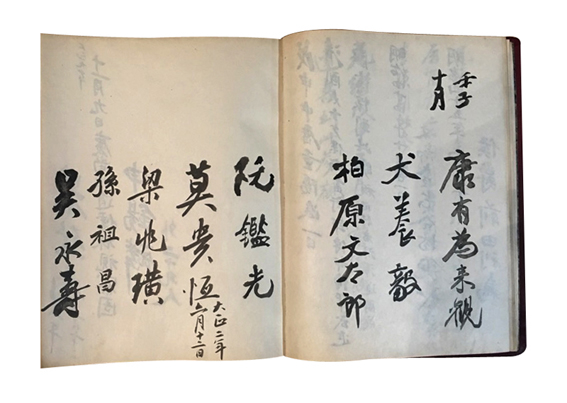 壬子
十月
康有為来観
犬養毅
柏原文太郎
阮鑑光
莫貴恒
大正二年
六月十二日
梁兆璜
孫祖昌
吴永壽